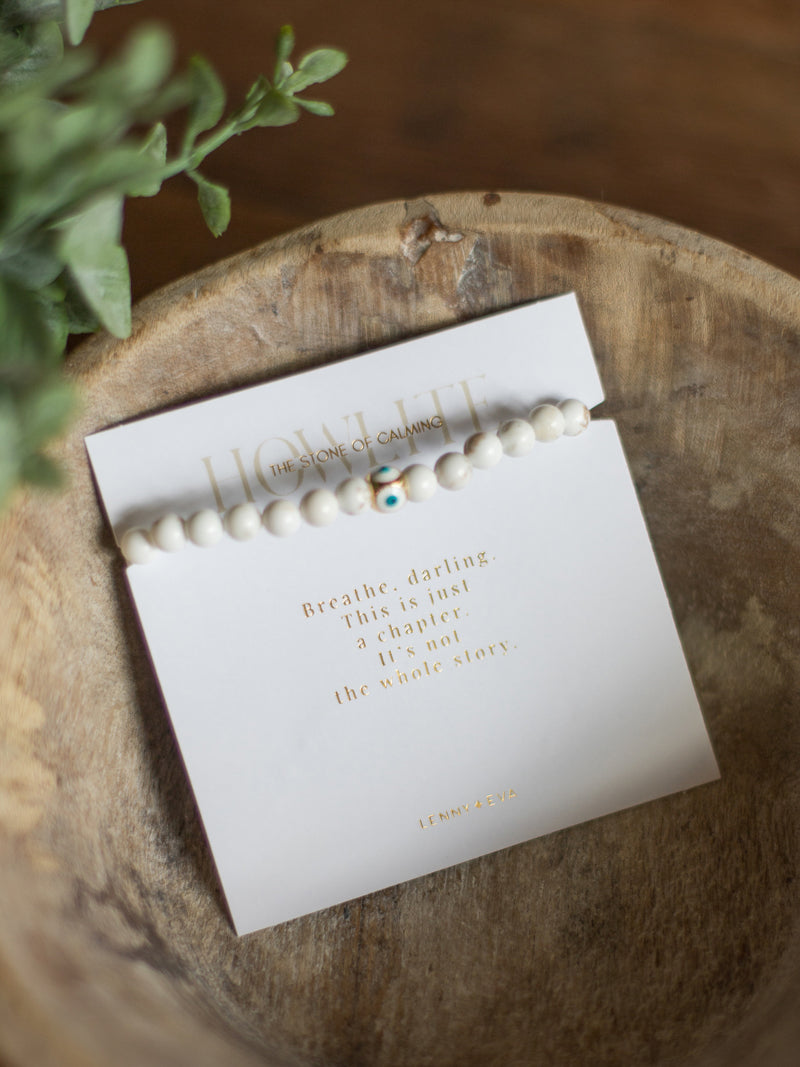 HOWLITE
THE STONE OF CALMING
Breathe, darling.
This is just
a chapter.
It's not
the whole story.
LENNY & EVA